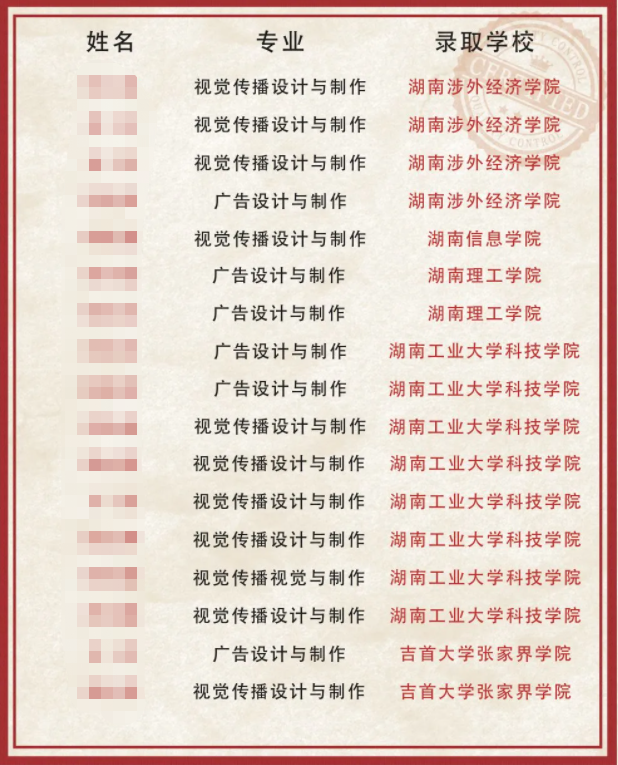 姓名 专业 录取学校
视觉传播设计与制作 湖南涉外经济学院
视觉传播设计与制作 湖南涉外经济学院
视觉传播设计与制作 湖南涉外经济学院
广告设计与制作 湖南涉外经济学院
视觉传播设计与制作 湖南信息学院
广告设计与制作 湖南理工学院
广告设计与制作 湖南理工学院
广告设计与制作 湖南工业大学科技学院
广告设计与制作 湖南工业大学科技学院
视觉传播设计与制作 湖南工业大学科技学院
视觉传播设计与制作 湖南工业大学科技学院
视觉传播设计与制作 湖南工业大学科技学院
视觉传播设计与制作 湖南工业大学科技学院
视觉传播视觉与制作 湖南工业大学科技学院
视觉传播设计与制作 湖南工业大学科技学院
广告设计与制作 吉首大学张家界学院
视觉传播设计与制作 吉首大学张家界学院
CERTIFIED
CONTROL
CONTROL